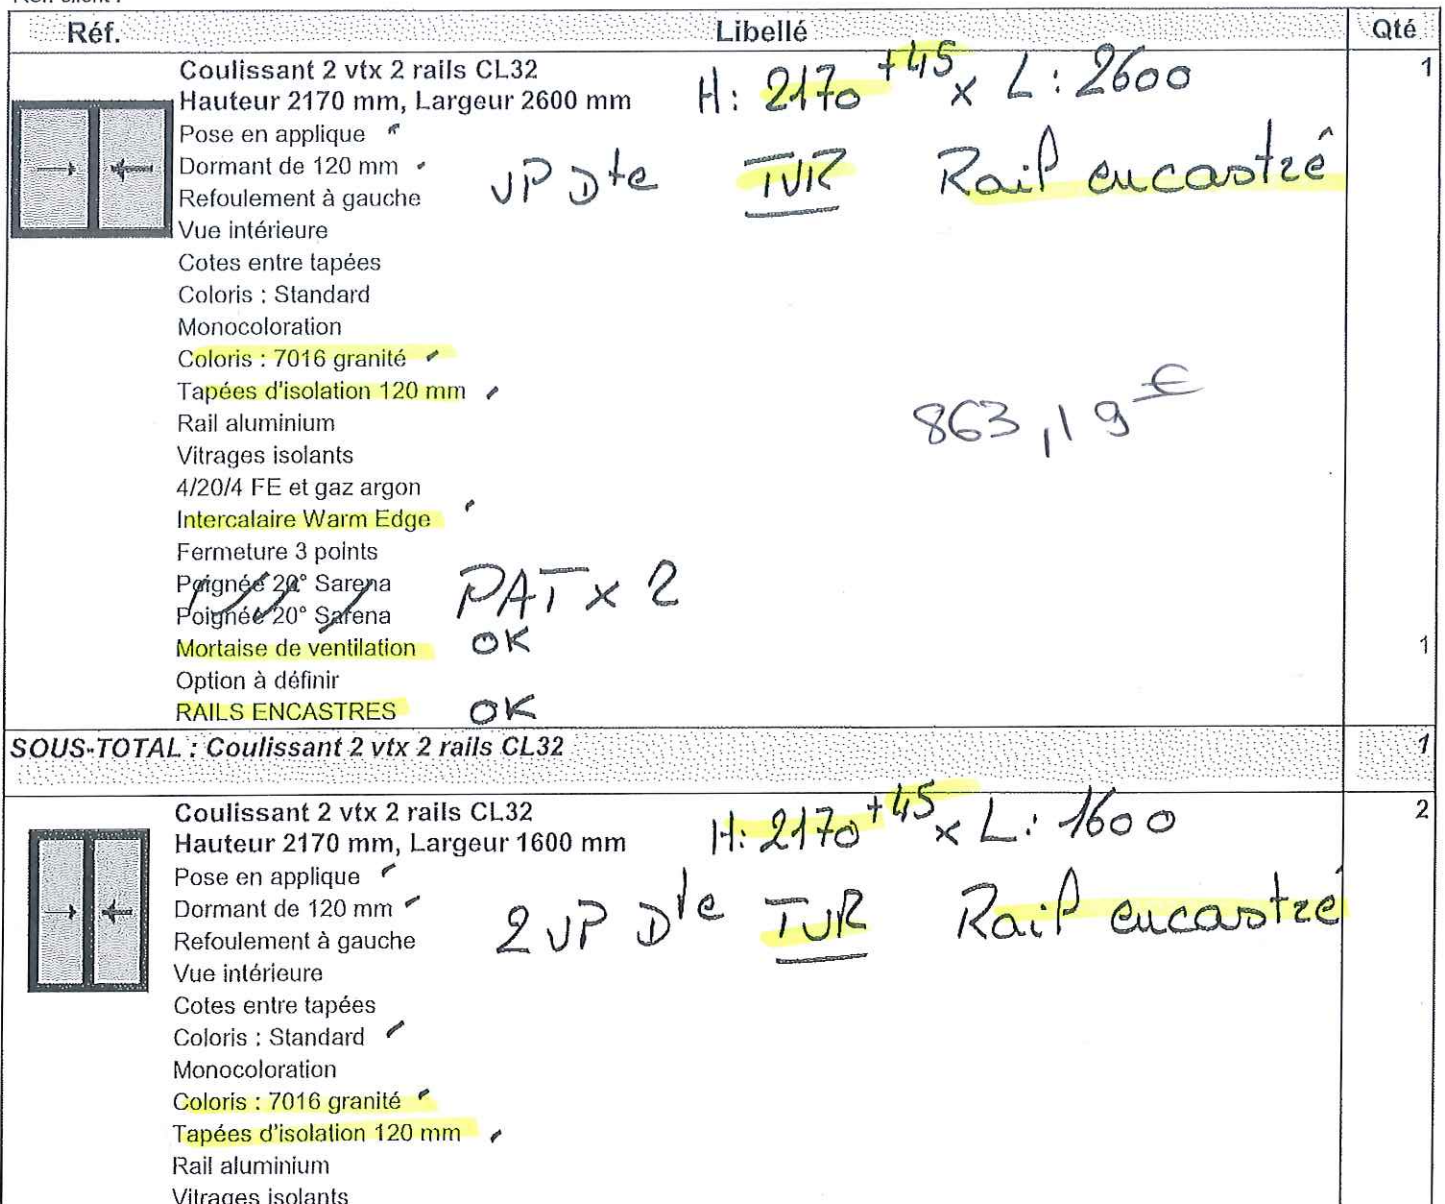 Réf. Libellé Qté
Coulissant 2 vtx 2 rails CL32 1
Hauteur 2170 mm, Largeur 2600 mm H: 2170 +45 x L: 2600
Pose en applique
Dormant de 120 mm VP Dte TVR Rail encastré
Refoulement à gauche
Vue intérieure
Cotes entre tapées
Coloris : Standard
Monocoloration
Coloris : 7016 granité
Tapées d'isolation 120 mm
Rail aluminium 863,19 €
Vitrages isolants
4/20/4 FE et gaz argon
Intercalaire Warm Edge
Fermeture 3 points
Poignée 20° Sarena PAT x 2
Poignée 20° Sarena
Mortaise de ventilation OK 1
Option à définir
RAILS ENCASTRES OK
SOUS-TOTAL : Coulissant 2 vtx 2 rails CL32 1
Coulissant 2 vtx 2 rails CL32 2
Hauteur 2170 mm, Largeur 1600 mm H: 2170 +45 x L: 1600
Pose en applique
Dormant de 120 mm 2 VP Dte TVR Rail encastré
Refoulement à gauche
Vue intérieure
Cotes entre tapées
Coloris : Standard
Monocoloration
Coloris : 7016 granité
Tapées d'isolation 120 mm
Rail aluminium
Vitrages isolants